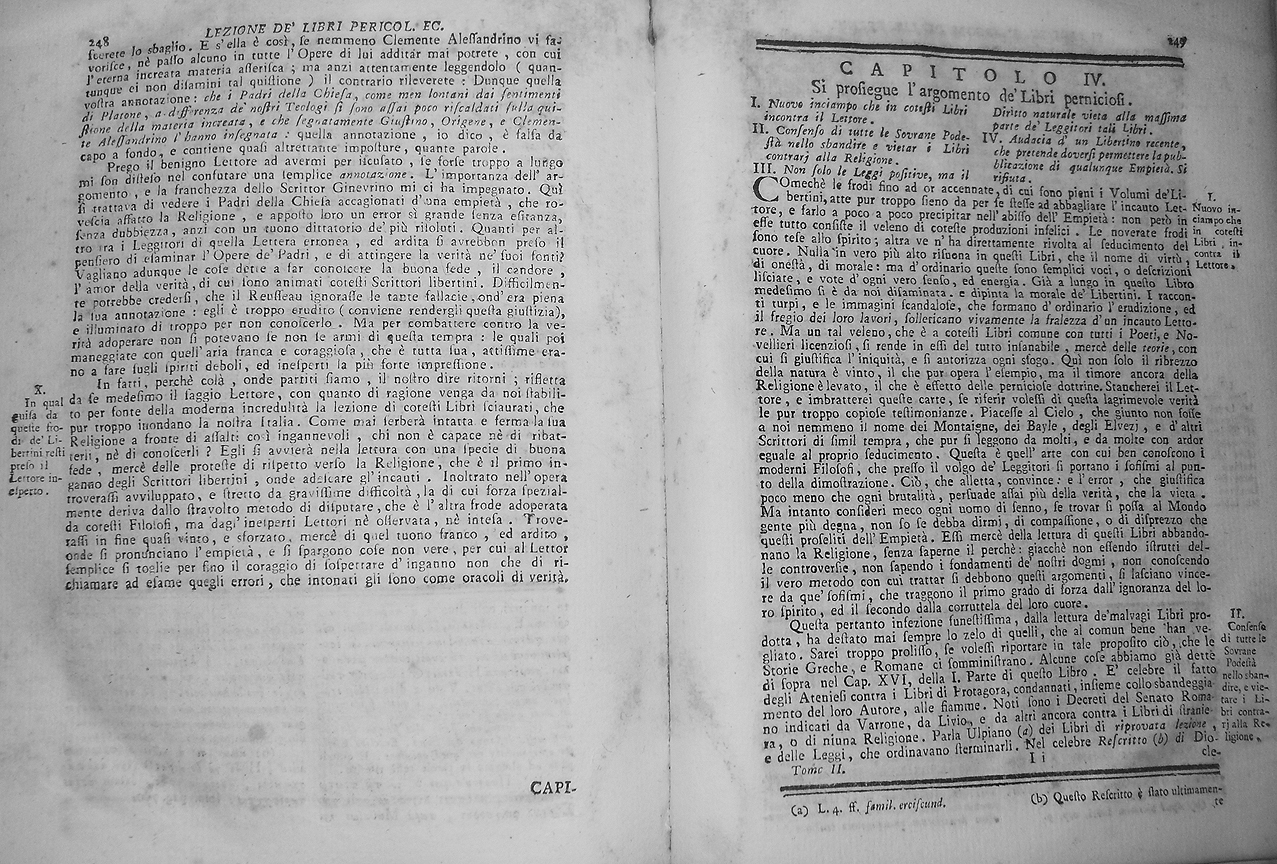 248
LEZIONE DE' LIBRI PERICOL. EC.
ſcerete lo sbaglio. E s'ella è così, ſe nemmeno Clemente Aleſſandrino vi fa-
voriſce, nè paſſo alcuno in tutte l'Opere di lui additar mai potrete, con cui
l'eterna increata materia aſſeriſca; ma anzi attentamente leggendolo (quan-
tunque ei non diſamini tal quiſtione) il contrario rileverete: Dunque quella
voſtra annotazione: che i Padri della Chieſa, come men lontani dai ſentimenti
di Platone, a differenza de' noſtri Teologi ſi ſono aſſai poco riſcaldati ſulla qui-
ſtione della materia increata, e che ſegnatamente Giuſtino, Origene, e Clemen-
te Aleſſandrino l'hanno inſegnata: quella annotazione, io dico, è falſa da
capo a fondo, e contiene quaſi altrettante impoſture, quante parole.
Prego il benigno Lettore ad avermi per iſcuſato, ſe forſe troppo a lungo
mi ſon diſteſo nel confutare una ſemplice annotazione. L'importanza dell'ar-
gomento, e la franchezza dello Scrittor Ginevrino mi ci ha impegnato. Quì
ſi trattava di vedere i Padri della Chieſa accagionati d'una empietà, che ro-
veſcia affatto la Religione, e appoſto loro un error sì grande ſenza eſitanza,
ſenza dubbiezza, anzi con un tuono dittatorio de' più riſoluti. Quanti per al-
tro tra i Leggitori di quella Lettera erronea, ed ardita ſi avrebben preſo il
penſiero di eſaminar l'Opere de' Padri, e di attingere la verità ne' ſuoi fonti?
Vagliano adunque le coſe dette a far conoſcere la buona fede, il candore,
l'amor della verità, di cui ſono animati coteſti Scrittori libertini. Difficilmen-
te potrebbe crederſi, che il Reuſſeau ignoraſſe le tante fallacie, ond'era piena
la ſua annotazione: egli è troppo erudito (conviene rendergli queſta giuſtizia),
e illuminato di troppo per non conoſcerlo. Ma per combattere contro la ve-
rità adoperare non ſi potevano ſe non le armi di queſta tempra: le quali poi
maneggiate con quell'aria franca e coraggioſa, che è tutta ſua, attiſſime era-
no a fare ſugli ſpiriti deboli, ed ineſperti la più forte impreſſione.
X.
In qual
guiſa da
queſte fro-
di de' Li-
bertini reſti
preſo il
Lettore in-
eſperto.
In fatti, perchè colà, onde partiti ſiamo, il noſtro dire ritorni; rifletta
da ſe medeſimo il ſaggio Lettore, con quanto di ragione venga da noi ſtabili-
to per fonte della moderna incredulità la lezione di coteſti Libri ſciaurati, che
pur troppo inondano la noſtra Italia. Come mai ſerberà intatta e ferma la ſua
Religione a fronte di aſſalti così ingannevoli, chi non è capace nè di ribat-
terli, nè di conoſcerli? Egli ſi avvierà nella lettura con una ſpecie di buona
fede, mercè delle proteſte di riſpetto verſo la Religione, che è il primo in-
ganno degli Scrittori libertini, onde adeſcare gl'incauti. Inoltrato nell'opera
troveraſſi avviluppato, e ſtretto da graviſſime difficoltà, la di cui forza ſpezial-
mente deriva dallo ſtravolto metodo di diſputare, che è l'altra frode adoperata
da coteſti Filoſofi, ma dagl'ineſperti Lettori nè oſſervata, nè inteſa. Trove-
raſſi in fine quaſi vinto, e sforzato, mercè di quel tuono franco, ed ardito,
onde ſi pronunciano l'empietà, e ſi ſpargono coſe non vere, per cui al Lettor
ſemplice ſi toglie per fino il coraggio di ſoſpettare d'inganno non che di ri-
chiamare ad eſame quegli errori, che intonati gli ſono come oracoli di verità.
CAPI-
249
CAPITOLO IV.
Si proſiegue l'argomento de' Libri pernicioſi.
I. Nuovo inciampo che in coteſti Libri
incontra il Lettore.
II. Conſenſo di tutte le Sovrane Pode-
ſtà nello sbandire e vietar i Libri
contrarj alla Religione.
III. Non ſolo le Leggi poſitive, ma il
Diritto naturale vieta alla maſſima
parte de' Leggitori tali Libri.
IV. Audacia d'un Libertino recente,
che pretende doverſi permettere la pub-
blicazione di qualunque Empietà. Si
rifiuta.
COmechè le frodi fino ad or accennate, di cui ſono pieni i Volumi de' Li-
bertini, atte pur troppo ſieno da per ſe ſteſſe ad abbagliare l'incauto Let-
tore, e farlo a poco a poco precipitar nell'abiſſo dell'Empietà: non però in
eſſe tutto conſiſte il veleno di coteſte produzioni infelici. Le noverate frodi
ſono teſe allo ſpirito; altra ve n'ha direttamente rivolta al ſeducimento del
cuore. Nulla in vero più alto riſuona in queſti Libri, che il nome di virtù,
di oneſtà, di morale: ma d'ordinario queſte ſono ſemplici voci, o deſcrizioni
liſciate, e vote d'ogni vero ſenſo, ed energia. Già a lungo in queſto Libro
medeſimo ſi è da noi diſaminata, e dipinta la morale de' Libertini. I raccon-
ti turpi, e le immagini ſcandaloſe, che formano d'ordinario l'erudizione, ed
il fregio dei loro lavori, ſolleticano vivamente la fralezza d'un incauto Letto-
re. Ma un tal veleno, che è a coteſti Libri comune con tutti i Poeti, e No-
vellieri licenzioſi, ſi rende in eſſi del tutto inſanabile, mercè delle teorie, con
cui ſi giuſtifica l'iniquità, e ſi autorizza ogni sfogo. Quì non ſolo il ribrezzo
della natura è vinto, il che pur opera l'eſempio, ma il timore ancora della
Religione è levato, il che è effetto delle pernicioſe dottrine. Stancherei il Let-
tore, e imbratterei queſte carte, ſe riferir voleſſi di queſta lagrimevole verità
le pur troppo copioſe teſtimonianze. Piaceſſe al Cielo, che giunto non foſſe
a noi nemmeno il nome dei Montaigne, dei Bayle, degli Elvezj, e d'altri
Scrittori di ſimil tempra, che pur ſi leggono da molti, e da molte con ardor
eguale al proprio ſeducimento. Queſta è quell'arte con cui ben conoſcono i
moderni Filoſofi, che preſſo il volgo de' Leggitori ſi portano i ſofiſmi al pun-
to della dimoſtrazione. Ciò, che alletta, convince: e l'error, che giuſtifica
poco meno che ogni brutalità, perſuade aſſai più della verità, che la vieta.
Ma intanto conſideri meco ogni uomo di ſenno, ſe trovar ſi poſſa al Mondo
gente più degna, non ſo ſe debba dirmi, di compaſſione, o di diſprezzo che
queſti proſeliti dell'Empietà. Eſſi mercè della lettura di queſti Libri abbando-
nano la Religione, ſenza ſaperne il perchè: giacchè non eſſendo iſtrutti del-
le controverſie, non ſapendo i fondamenti de' noſtri dogmi, non conoſcendo
il vero metodo con cui trattar ſi debbono queſti argomenti, ſi laſciano vince-
re da que' ſofiſmi, che traggono il primo grado di forza dall'ignoranza del lo-
ro ſpirito, ed il ſecondo dalla corruttela del loro cuore.
I.
Nuovo in-
ciampo che
in coteſti
Libri in-
contra il
Lettore.
Queſta pertanto infezione funeſtiſſima, dalla lettura de' malvagi Libri pro-
dotta, ha deſtato mai ſempre lo zelo di quelli, che al comun bene han ve-
gliato. Sarei troppo proliſſo, ſe voleſſi riportare in tale propoſito ciò, che le
Storie Greche, e Romane ci ſomminiſtrano. Alcune coſe abbiamo già dette
di ſopra nel Cap. XVI, della I. Parte di queſto Libro. E' celebre il fatto
degli Atenieſi contra i Libri di Protagora, condannati, inſieme collo sbandeggia-
mento del loro Autore, alle fiamme. Noti ſono i Decreti del Senato Roma-
no indicati da Varrone, da Livio, e da altri ancora contra i Libri di ſtranie-
ra, o di niuna Religione. Parla Ulpiano (a) dei Libri di riprovata lezione,
e delle Leggi, che ordinavano ſterminarli. Nel celebre Reſcritto (b) di Dio-
II.
Conſenſo
di tutte le
Sovrane
Podeſtà
nello sban-
dire, e vie-
tare i Li-
bri contra-
rj alla Re-
ligione.
Tomo II.
I i
cle-
(a) L. 4. ff. famil. erciſcund.
(b) Queſto Reſcritto è ſtato ultimamen-
te